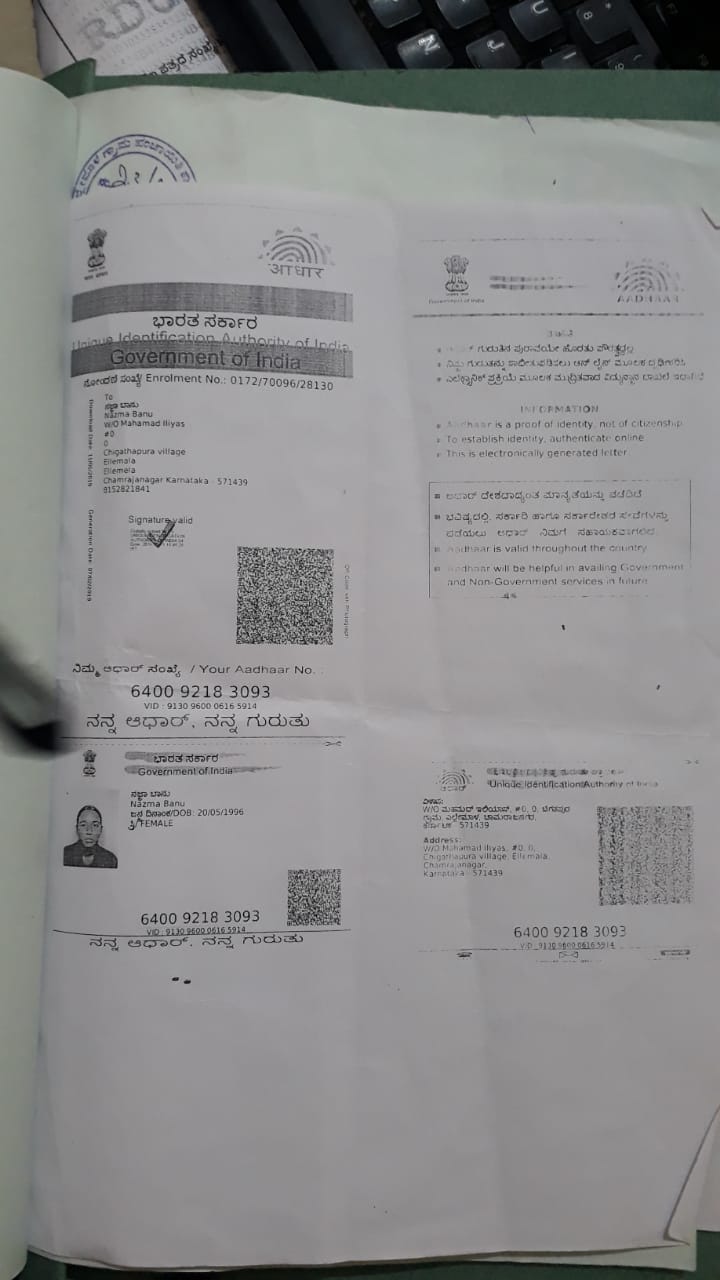 ಗ್ರಾಮ ಪಂಚಾಯಿತಿ
आधार
ಭಾರತ ಸರ್ಕಾರ
Unique Identification Authority of India
Government of India
ನೋಂದಣಿ ಸಂಖ್ಯೆ/ Enrolment No.: 0172/70096/28130
To
ನಜ್ಮಾ ಬಾನು
Nazma Banu
W/O Mahamad Iliyas
#0
0
Chigathapura village
Ellemala
Ellemela
Chamrajanagar Karnataka - 571439
9152821841
Signature valid
ನಿಮ್ಮ ಆಧಾರ್ ಸಂಖ್ಯೆ / Your Aadhaar No. :
6400 9218 3093
VID : 9130 9600 0616 5914
ನನ್ನ ಆಧಾರ್, ನನ್ನ ಗುರುತು
ಭಾರತ ಸರ್ಕಾರ
Government of India
ನಜ್ಮಾ ಬಾನು
Nazma Banu
ಜನ್ಮ ದಿನಾಂಕ/DOB: 20/05/1996
/ FEMALE
6400 9218 3093
VID : 9130 9600 0616 5914
ನನ್ನ ಆಧಾರ್, ನನ್ನ ಗುರುತು
Government of India
AADHAAR
ಗುರುತಿನ ಪುರಾವೆಯೇ ಹೊರತು ಪೌರತ್ವದ್ದಲ್ಲ
INFORMATION
Aadhaar is a proof of identity, not of citizenship
To establish identity, authenticate online
This is electronically generated letter
ಆಧಾರ್ ದೇಶದಾದ್ಯಂತ ಮಾನ್ಯತೆಯನ್ನು ಪಡೆದಿದೆ
ಭವಿಷ್ಯದಲ್ಲಿ, ಸರ್ಕಾರಿ ಹಾಗೂ ಸರ್ಕಾರೇತರ ಸೇವೆಗಳನ್ನು
ಪಡೆಯಲು ಆಧಾರ್ ನಿಮಗೆ ಸಹಾಯಕವಾಗಲಿದೆ
Aadhaar is valid throughout the country
Aadhaar will be helpful in availing Government
and Non-Government services in future
Unique Identification Authority of India
ವಿಳಾಸ:
W/O ಮಹಮದ್ ಇಲಿಯಾಸ್, #0, 0, ಚಿಗತಪುರ
ಗ್ರಾಮ, ಎಲ್ಲೇಮಾಳ, ಚಾಮರಾಜನಗರ,
ಕರ್ನಾಟಕ - 571439
Address:
W/O Mahamad Iliyas, #0, 0,
Chigathapura village, Ellemala,
Chamrajanagar,
Karnataka - 571439
6400 9218 3093
VID : 9130 9600 0616 5914